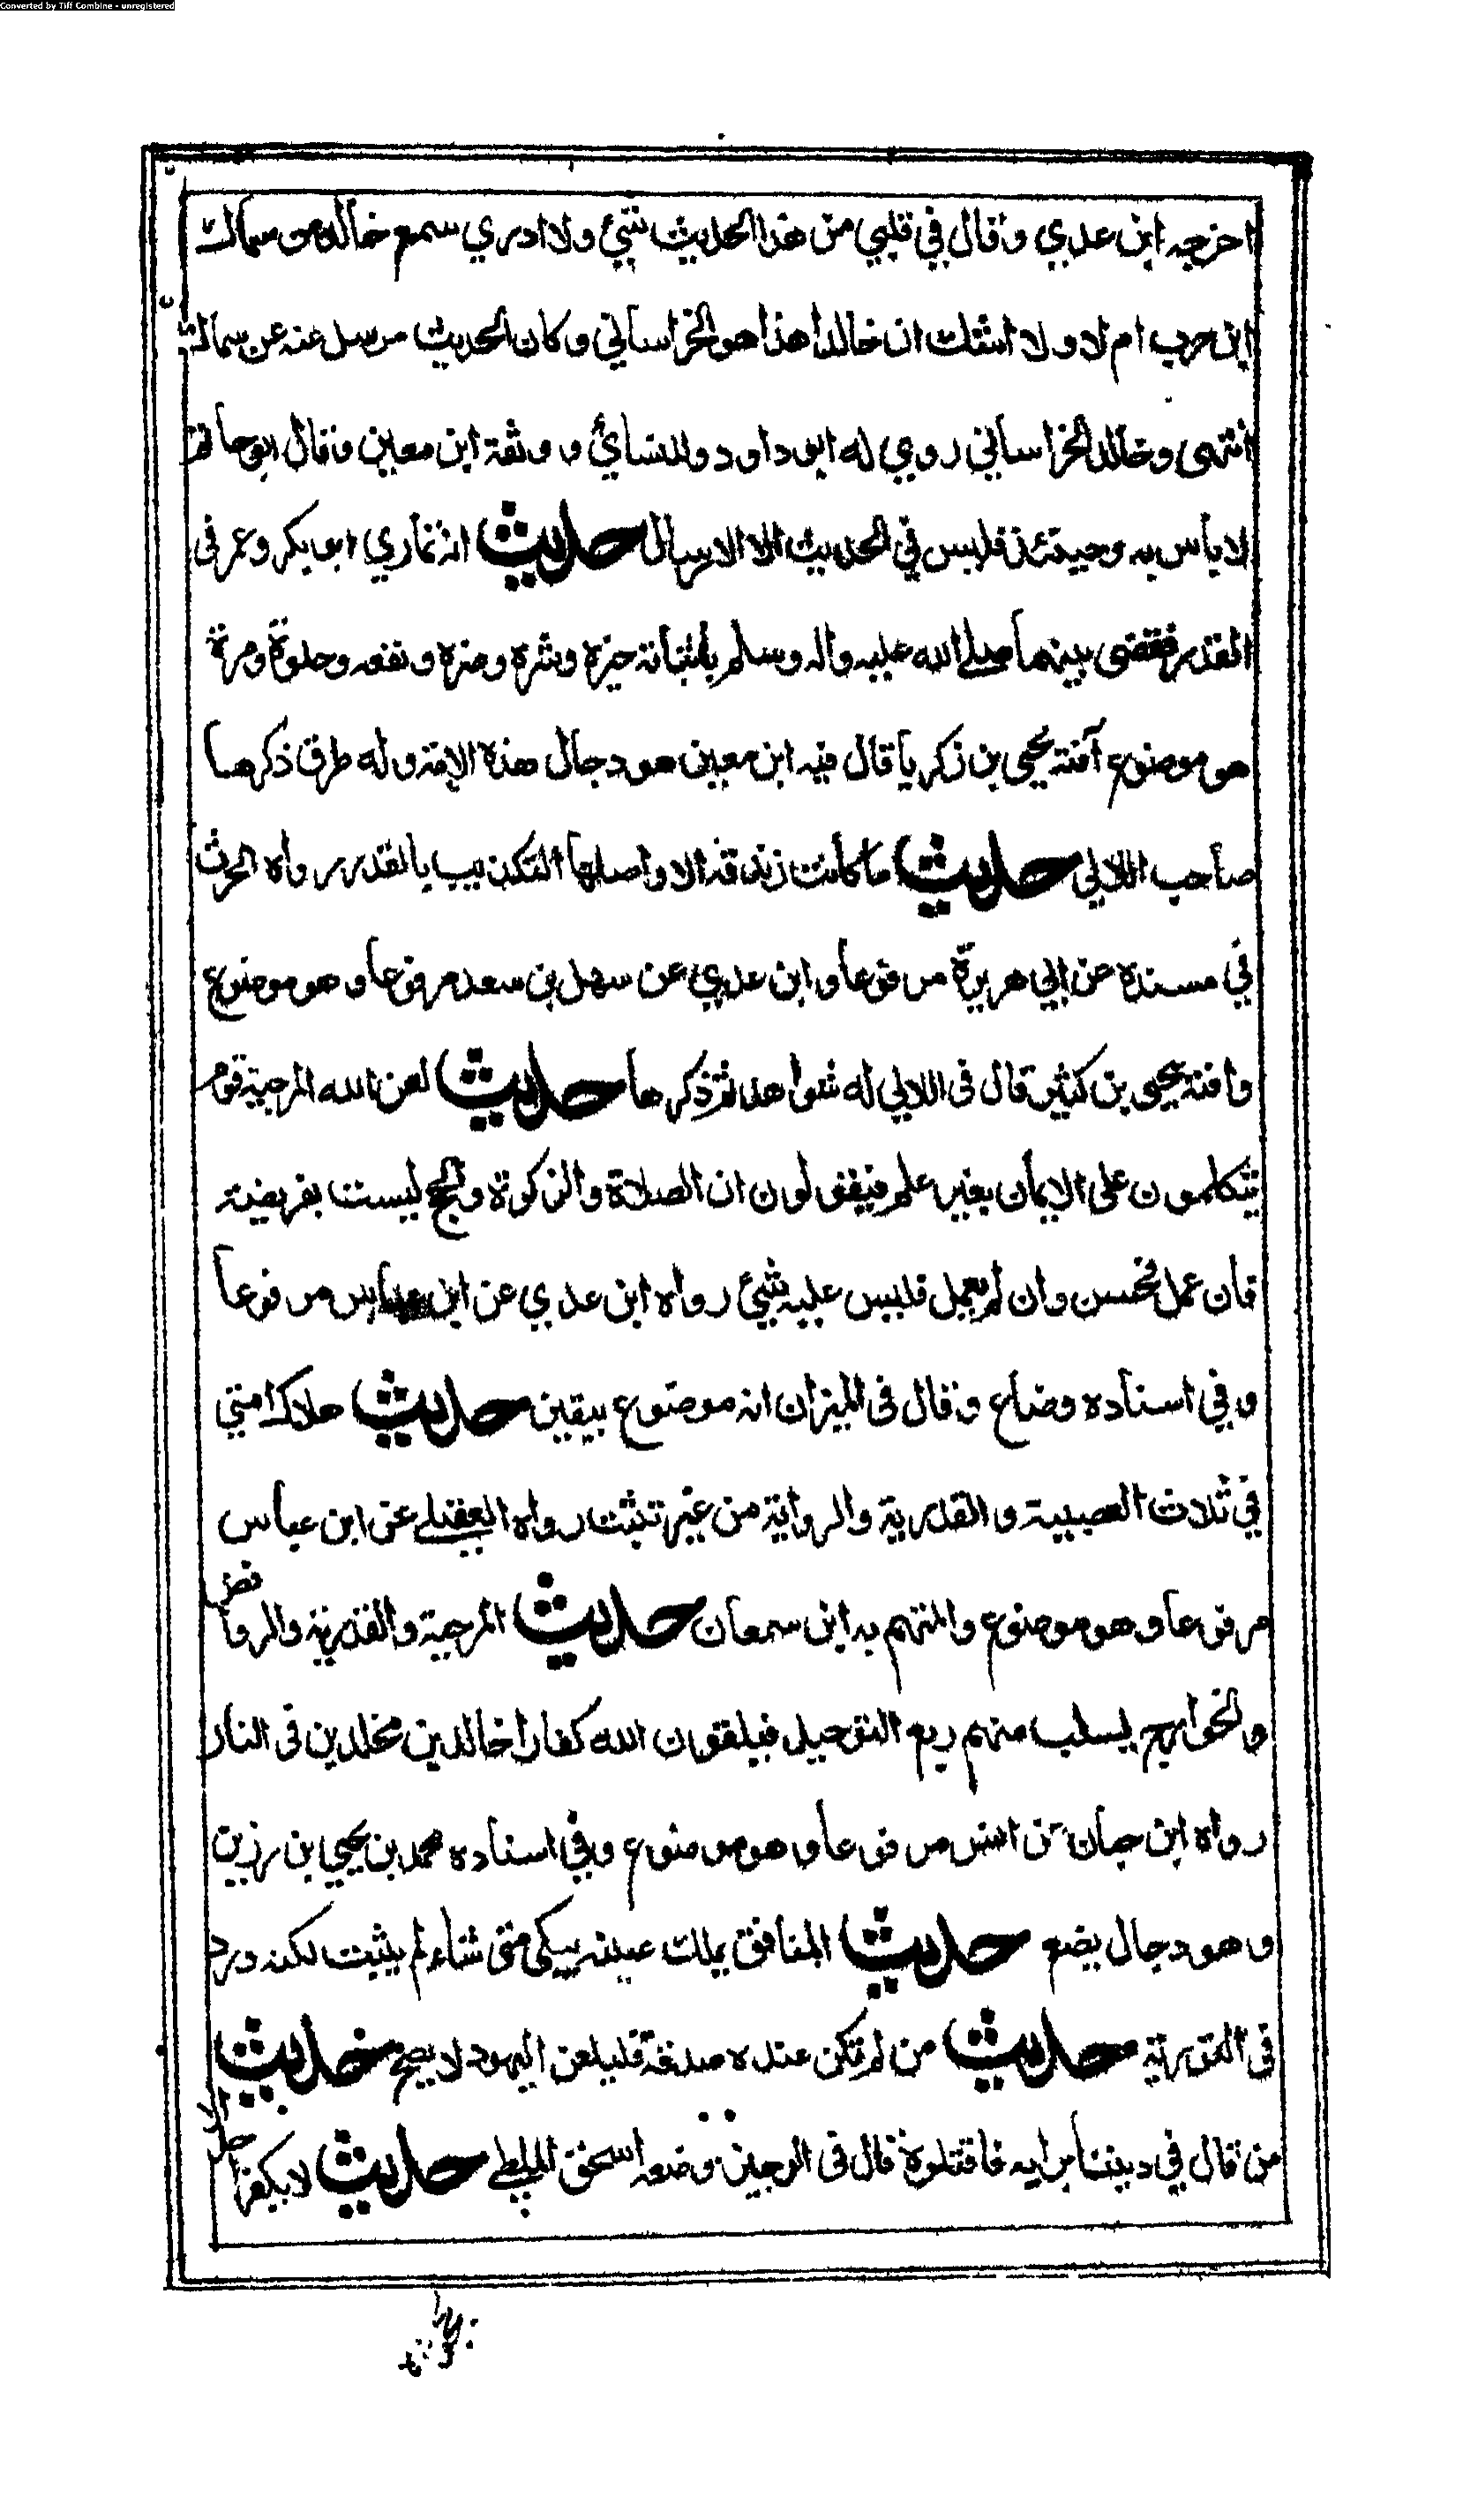 Converted by Tiff Combine - unregistered
اخرجه ابن عدي وقال في قلبي من هذا الحديث شيئ ولا ادري سمع خالد من سماك
ابن حرب ام لا ولا اشك ان خالدا هذا هو الخراساني وكان الحديث مرسل عنه عن سماك
انتهى وخالد الخراساني روي له ابو داود والنسائي ووثقة ابن معين وقال ابو حاتم
لا باس به وحينئذ فليس في الحديث الا الارسال حديث انه تماري ابو بكر وعمر في
القدر فقضى بينهما صلى الله عليه واله وسلم باثباته خيره وشره وضره ونفعه وحلوه ومره
هو موضوع آفته يحيى بن زكريا قال فيه ابن معين هو دجال هذه الامة وله طرق ذكرها
صاحب اللالي حديث ما كانت زندقة الا واصلها التكذيب بالقدر رواه الحرث
في مسنده عن ابي هريرة مرفوعا وابن عدي عن سهل بن سعد مرفوعا وهو موضوع
وافته يحيى بن كثير قال في اللالي له شواهد ثم ذكرها حديث لعن الله المرجية قوم
يتكلمون على الايمان بغير علم فيقولون ان الصلاة والزكوة والحج ليست بفريضة
فان عمل فحسن وان لم يعمل فليس عليه شيئ رواه ابن عدي عن ابن عباس مرفوعا
وفي اسناده وضاع وقال في الميزان انه موضوع بيقين حديث هلاك امتي
في ثلاث العصبية والقدرية والرواية من غير تثبت رواه العقيلي عن ابن عباس
مرفوعا وهو موضوع والمتهم به ابن سمعان حديث المرجية والقدرية والروافض
والخوارج يسلب منهم ربع التوحيد فيلقون الله كفارا خالدين مخلدين في النار
رواه ابن حبان عن انس مرفوعا وهو موضوع وفي اسناده محمد بن يحيى بن رزين
وهو دجال يضع حديث المنافق يملك عينيه يبكي متى شاء لم يثبت لكنه ورد
في التورية حديث من لم تكن عنده صدقة فليلعن اليهود لا يصح حديث
من قال في ديننا برايه فاقتلوه قال في الوجيز وضعه اسحق الملطي حديث الا
لا يكفر احد